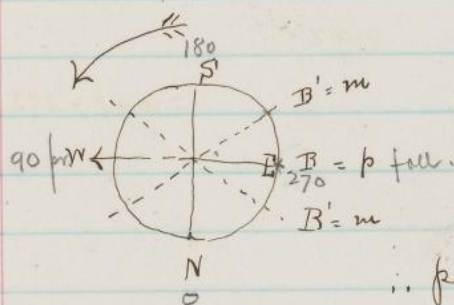 180
S
B' = m
90 W
E B = p foll.
270
B' = m
N
0
∴ p